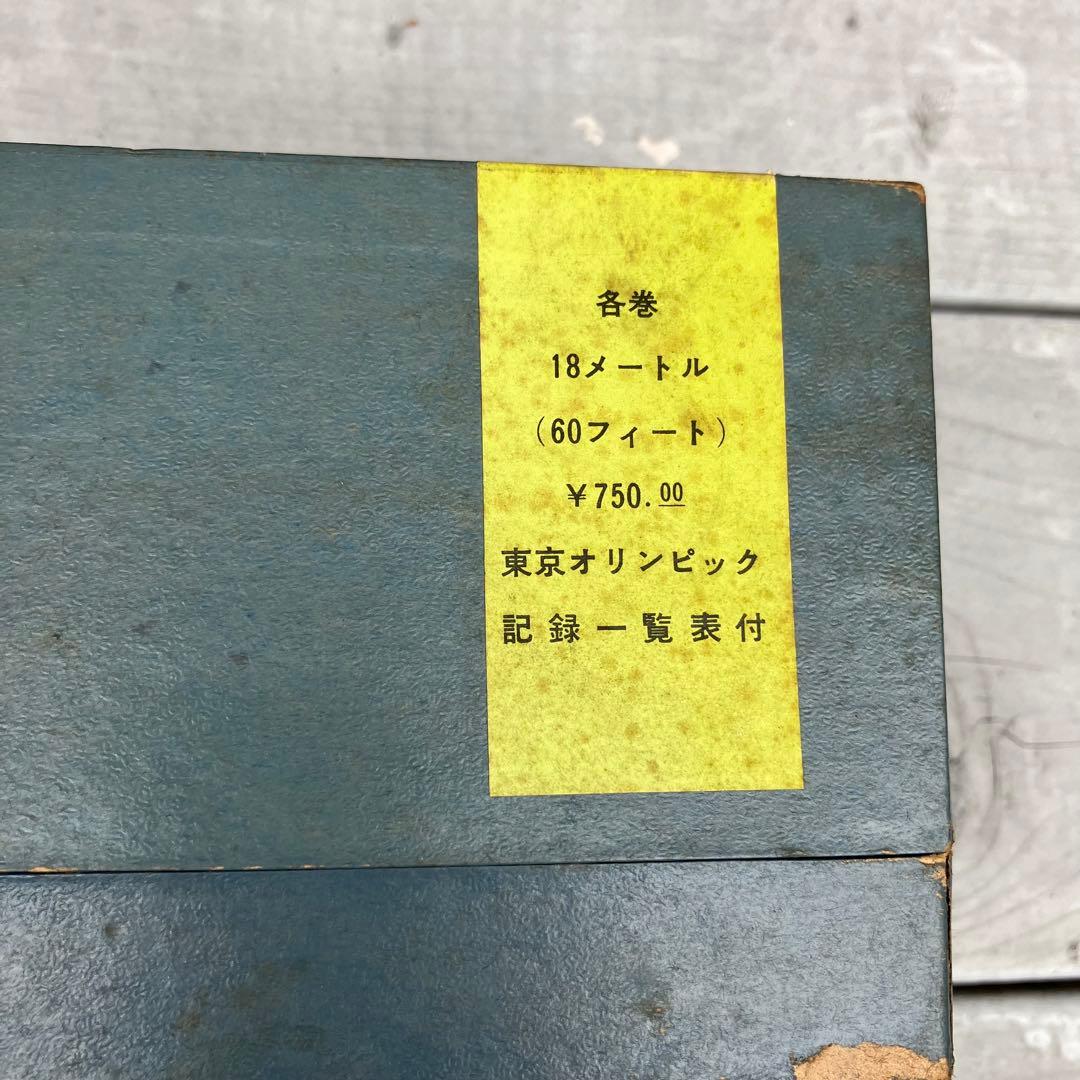 各巻
18メートル
(60フィート)
¥750.00
東京オリンピック
記録一覧表付